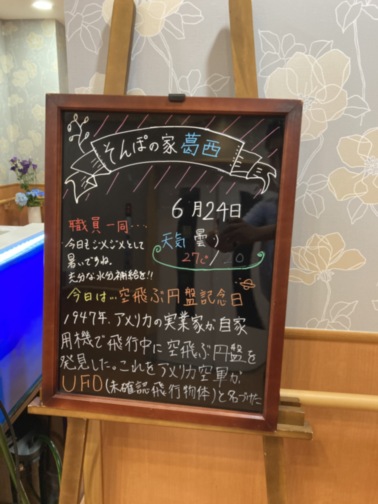 そんぽの家 葛西
6月24日
天気 曇り
27℃/20
職員一同…
今日もジメジメとして
暑いですね。
充分な水分補給を!!
今日は…空飛ぶ円盤記念日
1947年、アメリカの実業家が自家
用機で飛行中に空飛ぶ円盤を
発見した。これをアメリカ空軍が
UFO(未確認飛行物体)と名づけた